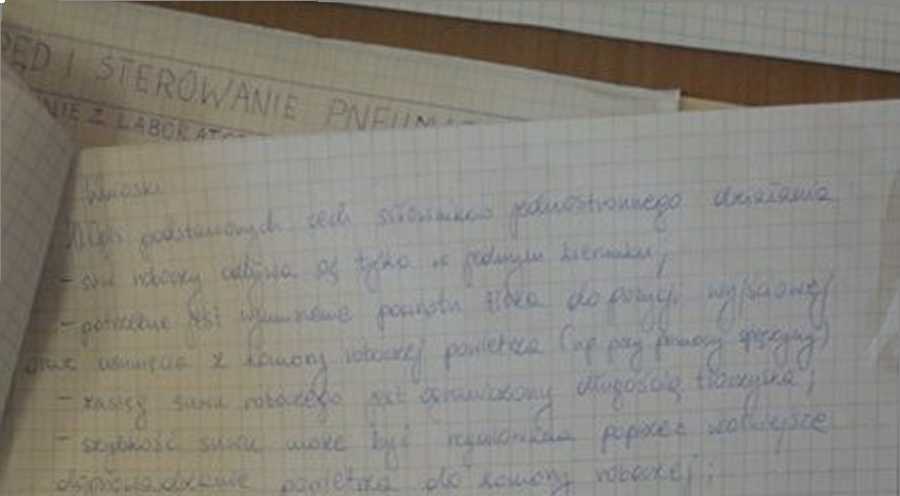 ĘD I STEROWANIE PNEUMA
NIE Z LABORATO
Wnioski
podstawowych cech siłowników jednostronnego działania
- suw roboczy odbywa się tylko w jednym kierunku;
- potrzebne jest wymuszenie powrotu tłoka do pozycji wyjściowej
oraz usunięcia z komory roboczej powietrza (np przy pomocy sprężyny)
- zasięg suwu roboczego jest ograniczony długością tłoczyska;
- szybkość suwu może być regulowana poprzez
doprowadzenie powietrza do komory roboczej;